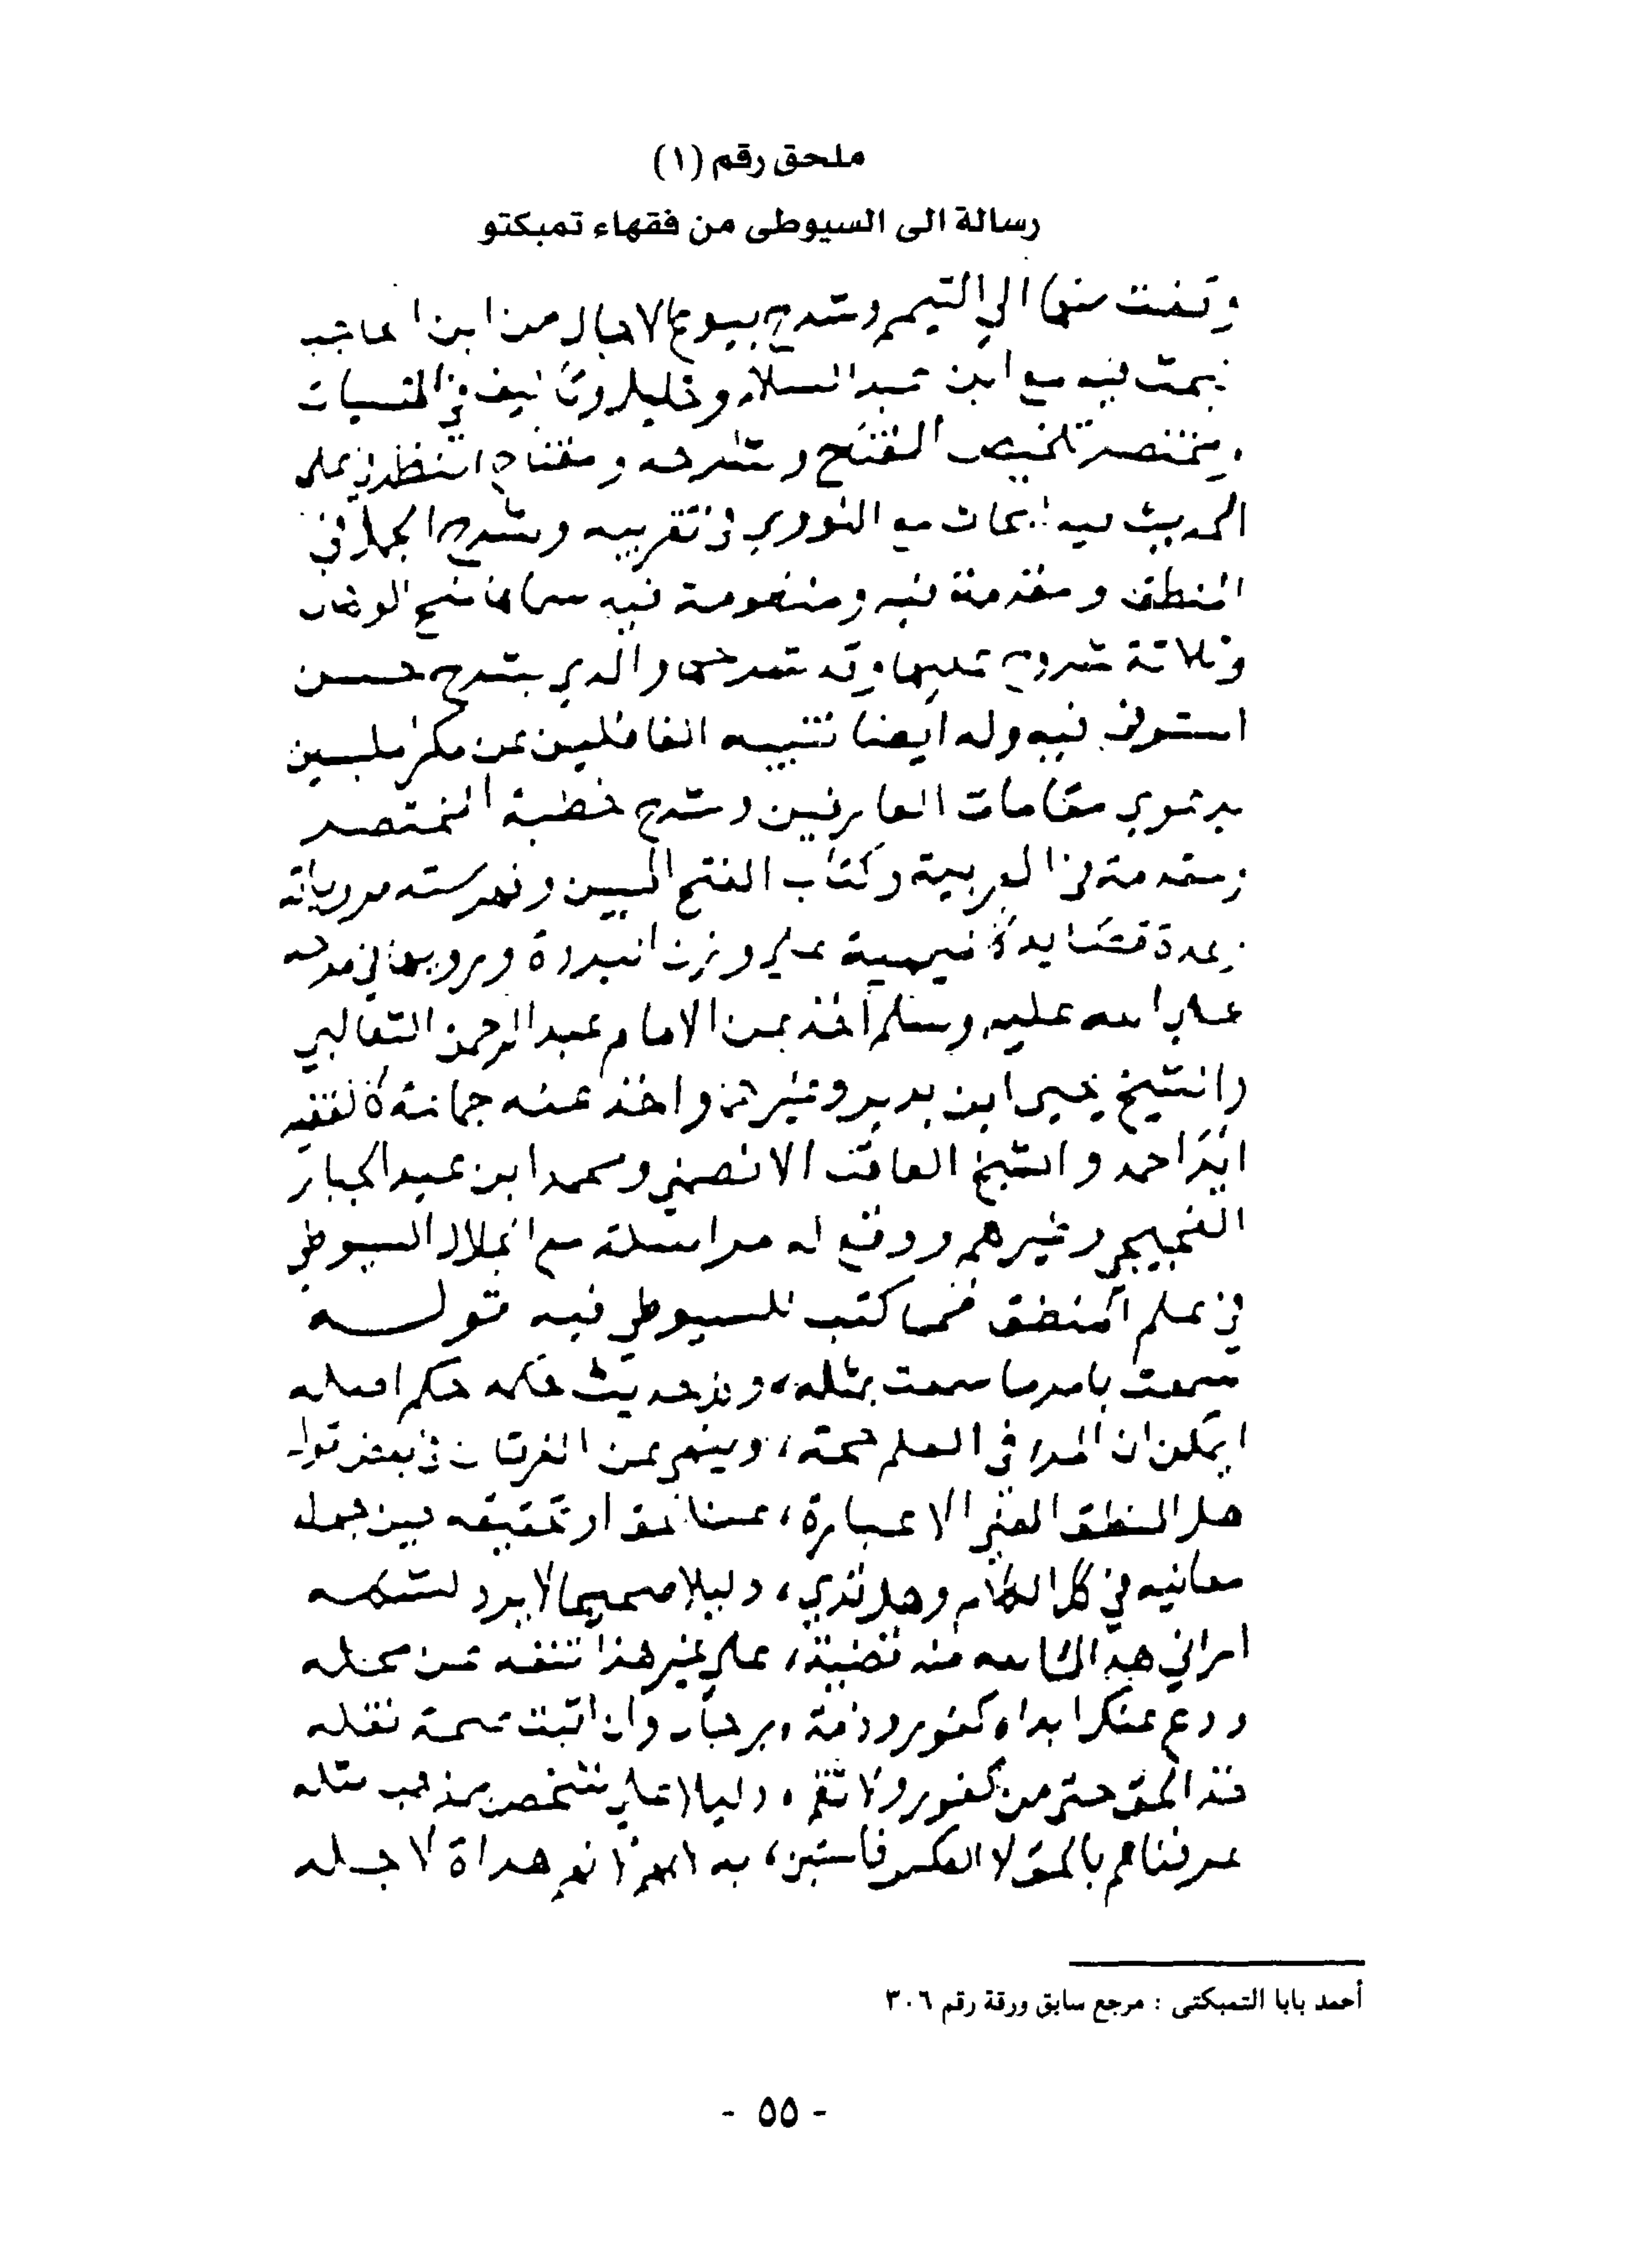 ملحق رقم (١)
رسالة الى السيوطى من فقهاء تمبكتو
وقفت منها الي التيمم وشرح بيوع الاجال من ابن الحاجب
بحث فيه مع ابن عبد السلام وخليل وتاليف في المنهيات
ومختصر تلخيص المفتاح وشرحه ومفتاح النظر في علم
الحديث فيه ابحاث مع النووي في تقريبه وشرح الجمل في
المنطق ومقدمة فيه ومنظومة فيه سماها منح الوهاب
وثلاثة شروح عليها وقد شرحها والدي بشرح حسن
استوفى فيه وله ايضا تنبيه الغافلين عن مكر الملبسين
بدعوي مقامات العارفين وشرح خطبة المختصر
ومقدمة في العربية وكتاب الفتح المبين وفهرسته مروياته
وعدة قصايد كالميمية علي وزن البردة ورويها في مدحه
صلي الله عليه وسلم اخذ عن الامام عبد الرحمن الثعالبي
والشيخ يحيى ابن بدير وغيرهما واخذ عنه جماعة كالفقيه
ايد احمد والشيخ العاقب الانصمني ومحمد ابن عبد الجبار
الفجيجي وغيرهم ووقع له مراسلة مع الجلال السيوطي
في علم المنطق فمما كتب للسيوطي فيه قوله
سمعت بامر ما سمعت بمثله، وكل حديث حكمه حكم اصله
ايمكن ان المرء في العلم حجة، وينهى عن الفرقان في بعض قوله
هل المنطق المعني الا عبارة، عن الحق او تحقيقه حين جهله
معانيه في كل الكلام وهل تري، دليلا صحيحا لا يرد لشكله
اراني هداك الله منه قضية، علي غير هذا تنفه عن محله
ودع عنك ابداه كفور وذمة، رجال وان اثبت صحة نقله
خذ الحق حتى من كفور ولا تقم، دليلا علي شخص بمذهب مثله
عرفناهم بالحق لا العكس فاستبن، به لا بهم اذ هم هداة لاجله
أحمد بابا التمبكتى : مرجع سابق ورقة رقم ٣٠٦
- ٥٥ -